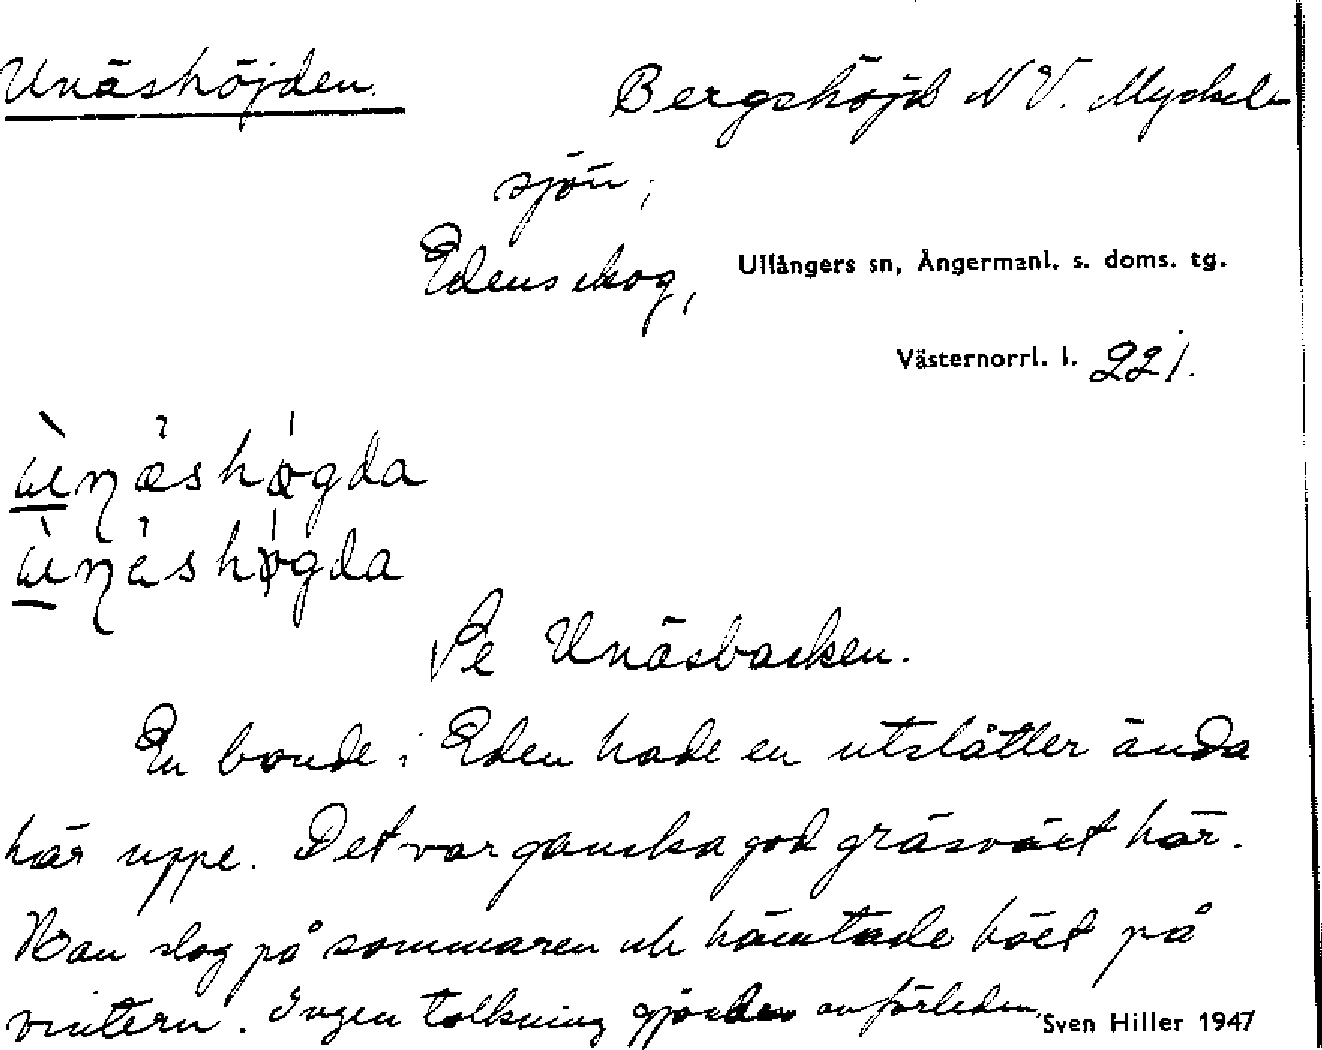 Unäshöjden. Bergshöjd NV. Myckel-
sjön;
Edens skog, Ullångers sn, Ångermanl. s. doms. tg.
Västernorrl. l. 221.
ùnæshøgda
ùnæshøgda
Se Unäsbacken.
En bonde i Eden hade en utslåtter ända
här uppe. Det var ganska god gräsväxt här.
Man slog på sommaren och hämtade höet på
vintern. Ingen tolkning gjordes av förleden.
Sven Hiller 1947